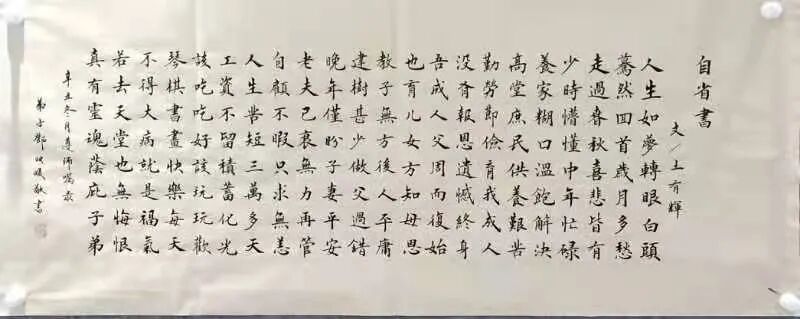 自省書
文/王有輝
人生如夢轉眼白頭
驀然回首歲月多愁
走過春秋喜悲皆有
少時懵懂中年忙碌
養家糊口溫飽解決
高堂庶民供養艱苦
勤勞即儉育我成人
没報恩遺憾終身
吾成人父周而復始
也育儿女方知母恩
教子無方後人平庸
建樹甚少做父過錯
晚年僅盼子妻平安
老夫已衰無力再管
自顧不暇只求無恙
人生苦短三萬多天
工資不留積蓄化光
該吃吃好該玩玩歡
琴棋書畫快樂每天
不得大病就是福氣
若去天堂也無悔恨
真有靈魂蔭庇子弟
辛丑冬月遵師囑
弟子鄭敬書